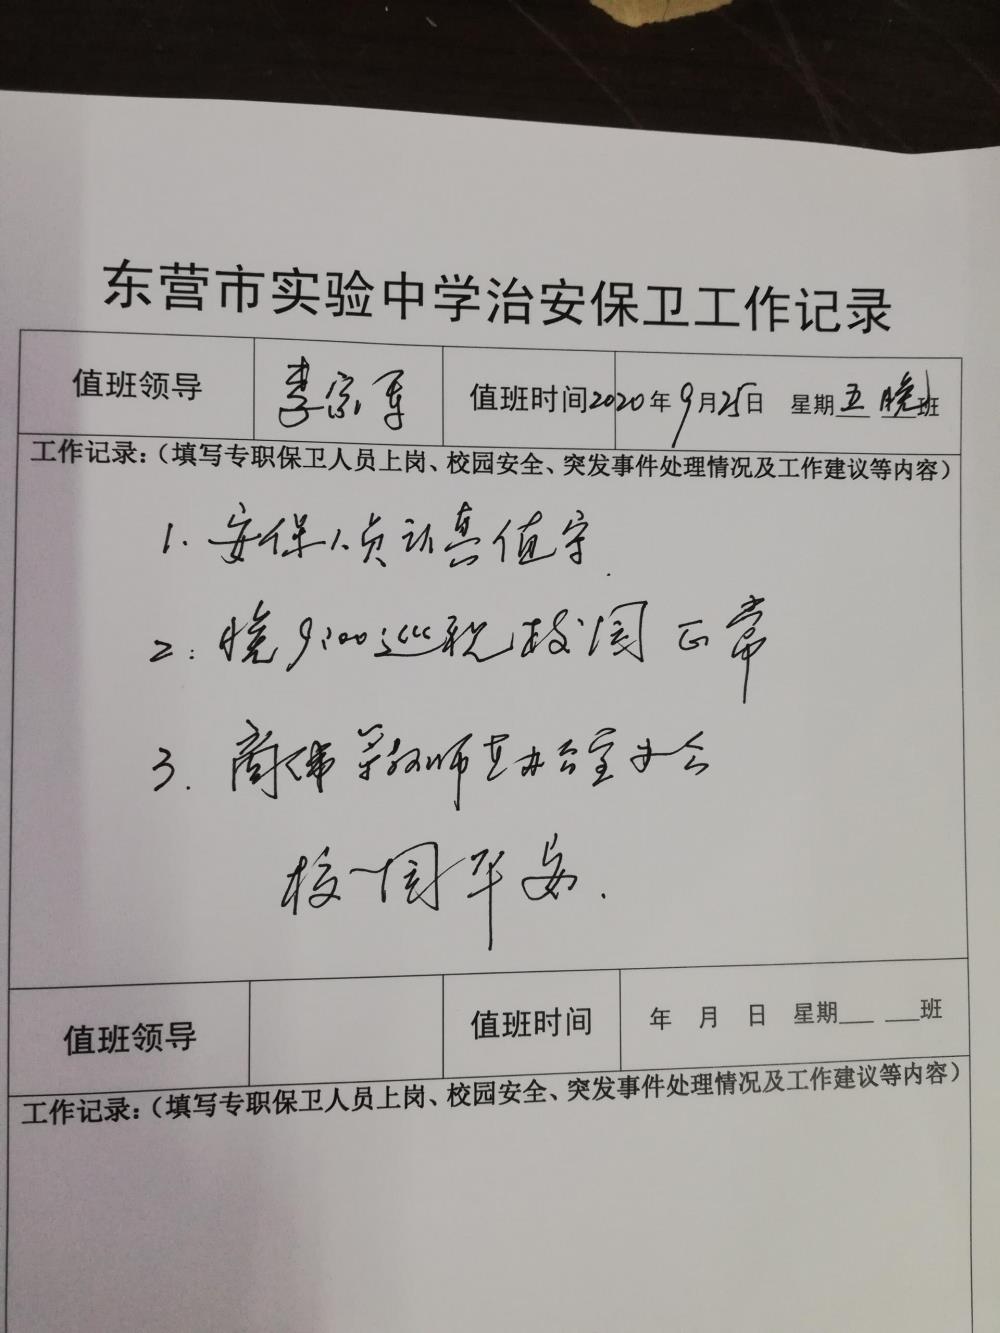 东营市实验中学治安保卫工作记录
值班领导 李宗军 值班时间 2020年9月25日 星期五 晚班
工作记录：（填写专职保卫人员上岗、校园安全、突发事件处理情况及工作建议等内容）
1. 安保人员认真值守.
2: 晚9:00巡视校园正常
3. 商伟 教师 办公室 会
校园平安.
值班领导 值班时间 年 月 日 星期___ ___班
工作记录：（填写专职保卫人员上岗、校园安全、突发事件处理情况及工作建议等内容）